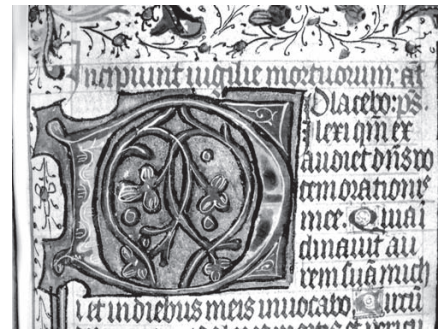 Incipiunt uigilie mortuorum. añ
Placebo. p̄s.
Dilexi qm̄ ex
audiet dn̄s vo
cem orationis
mee. Quia i
clinauit au
rem suā mich
i et in diebus meis inuocabo